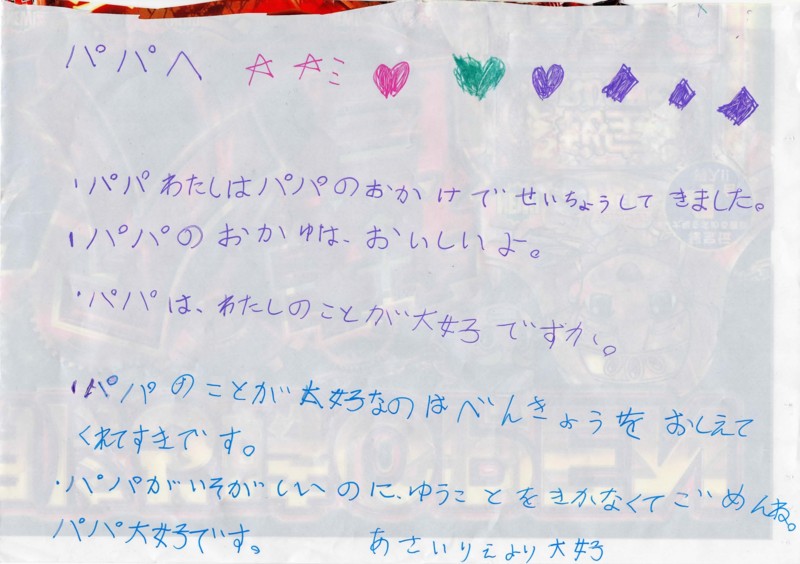 パパへ
・パパわたしはパパのおかけでせいちょうしてきました。
・パパのおかゆは、おいしいよ。
・パパは、わたしのことが大好ですか。
・パパのことが大好なのはべんきょうをおしえて
くれてすきです。
・パパがいそがしいのに、ゆうことをきかなくてごめんね。
パパ大好です。 あさいりえより大好